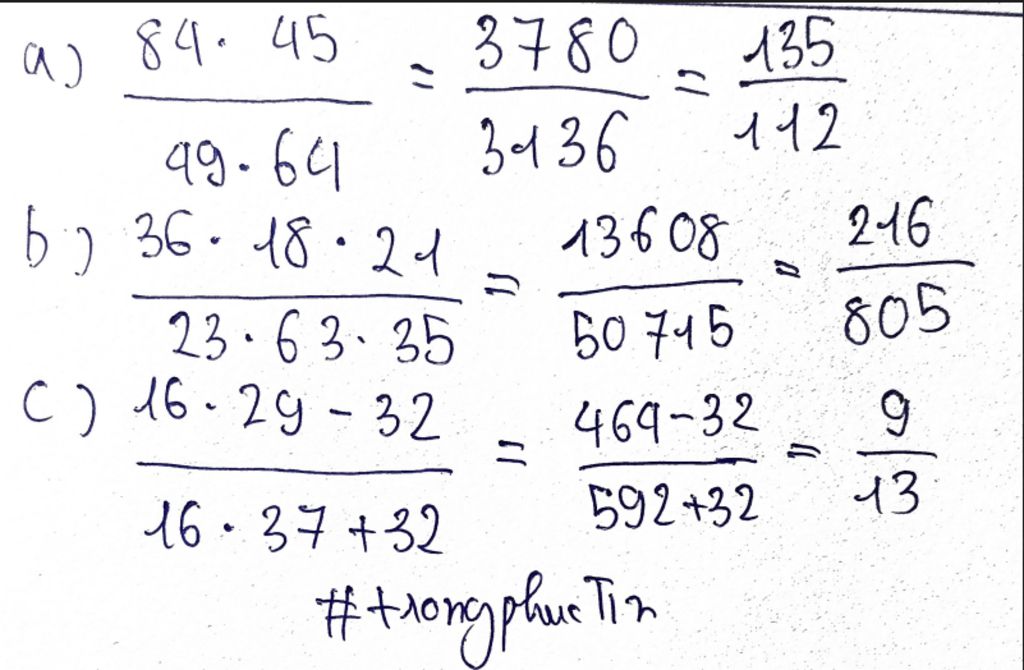 a) 84 · 45 / 49 · 64 = 3780 / 3136 = 135 / 112
b) 36 · 18 · 21 / 23 · 63 · 35 = 13608 / 50715 = 216 / 805
c) 16 · 29 - 32 / 16 · 37 + 32 = 464 - 32 / 592 + 32 = 9 / 13
#trongphucTin